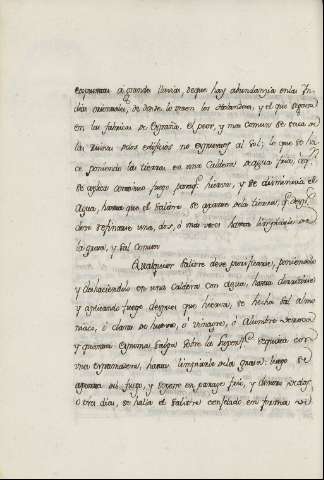 expuestas a grandes lluvias, de que hay abundancia en las In-
dias orientales, de donde lo traen los Holandeses, y el que se
en las fabricas de España. El peor, y mas comun se saca de
las ruinas de los edificios no expuestos al Sol; lo que se ha-
ce poniendo las tierras en una Caldera de agua fria,
se aplica fuego paraq.e hierva, y se disminuia el
Agua, hasta que el Salitre se separa de la tierra, q.e despues
debe refinarse una, dos, ó mas veces hasta limpiarlo de
la grasa, y Sal comun
Qualquier Salitre debe purificarse, poniendolo
y deshaciendolo en una Caldera con agua, hasta
y aplicando fuego despues que hierva, se hecha Sal almo
niaco, ó claras de huevo, ó vinagre, ó Alumbre
y quanta espuma salga sobre la superf.e se quita con
una espumadera, hasta limpiarle de la grasa: luego se
aparta del fuego, y se pone en parage frio, y dentro de dos,
o tres dias, se halla el Salitre congelado en forma de